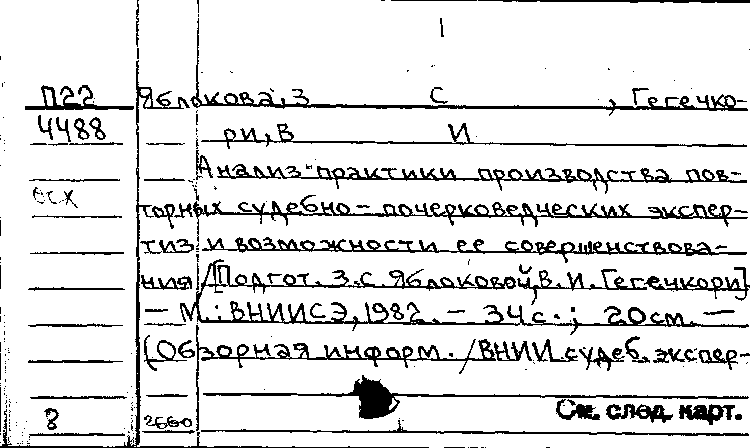 1
П22 Яблокова, З С , Гегечко-
4488 ри, В И
Анализ практики производства пов-
есх торных судебно-почерковедческих экспер-
тиз и возможности ее совершенствова-
ния / [Подгот. З.С. Яблоковой, В.И. Гегечкори]
— М.: ВНИИСЭ, 1982. — 34с.; 20см. —
(Обзорная информ. / ВНИИ судеб. экспер-
8 2660 См. след. карт.